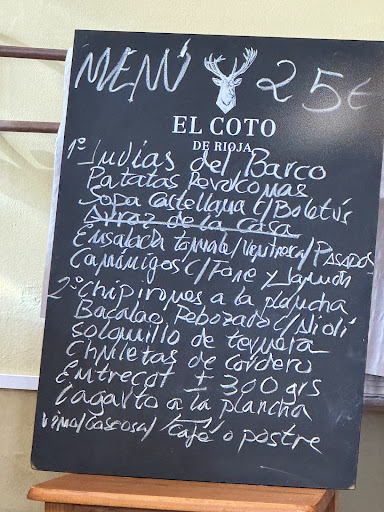 MENÚ 25€
EL COTO
DE RIOJA
1º Judias del Barco
Patatas Revolconas
Sopa Castellana c/Boletus
Arroz de la casa
Ensalada Tomate/Ventresca/Pasados
c/Foie y Jamón
2º Chipirones a la plancha
Bacalao Rebozado c/Alioli
Solomillo de ternera
Chuletas de Cordero
Entrecot ± 300 grs
Lagarto a la plancha
vino/Gaseosa/ Café o postre